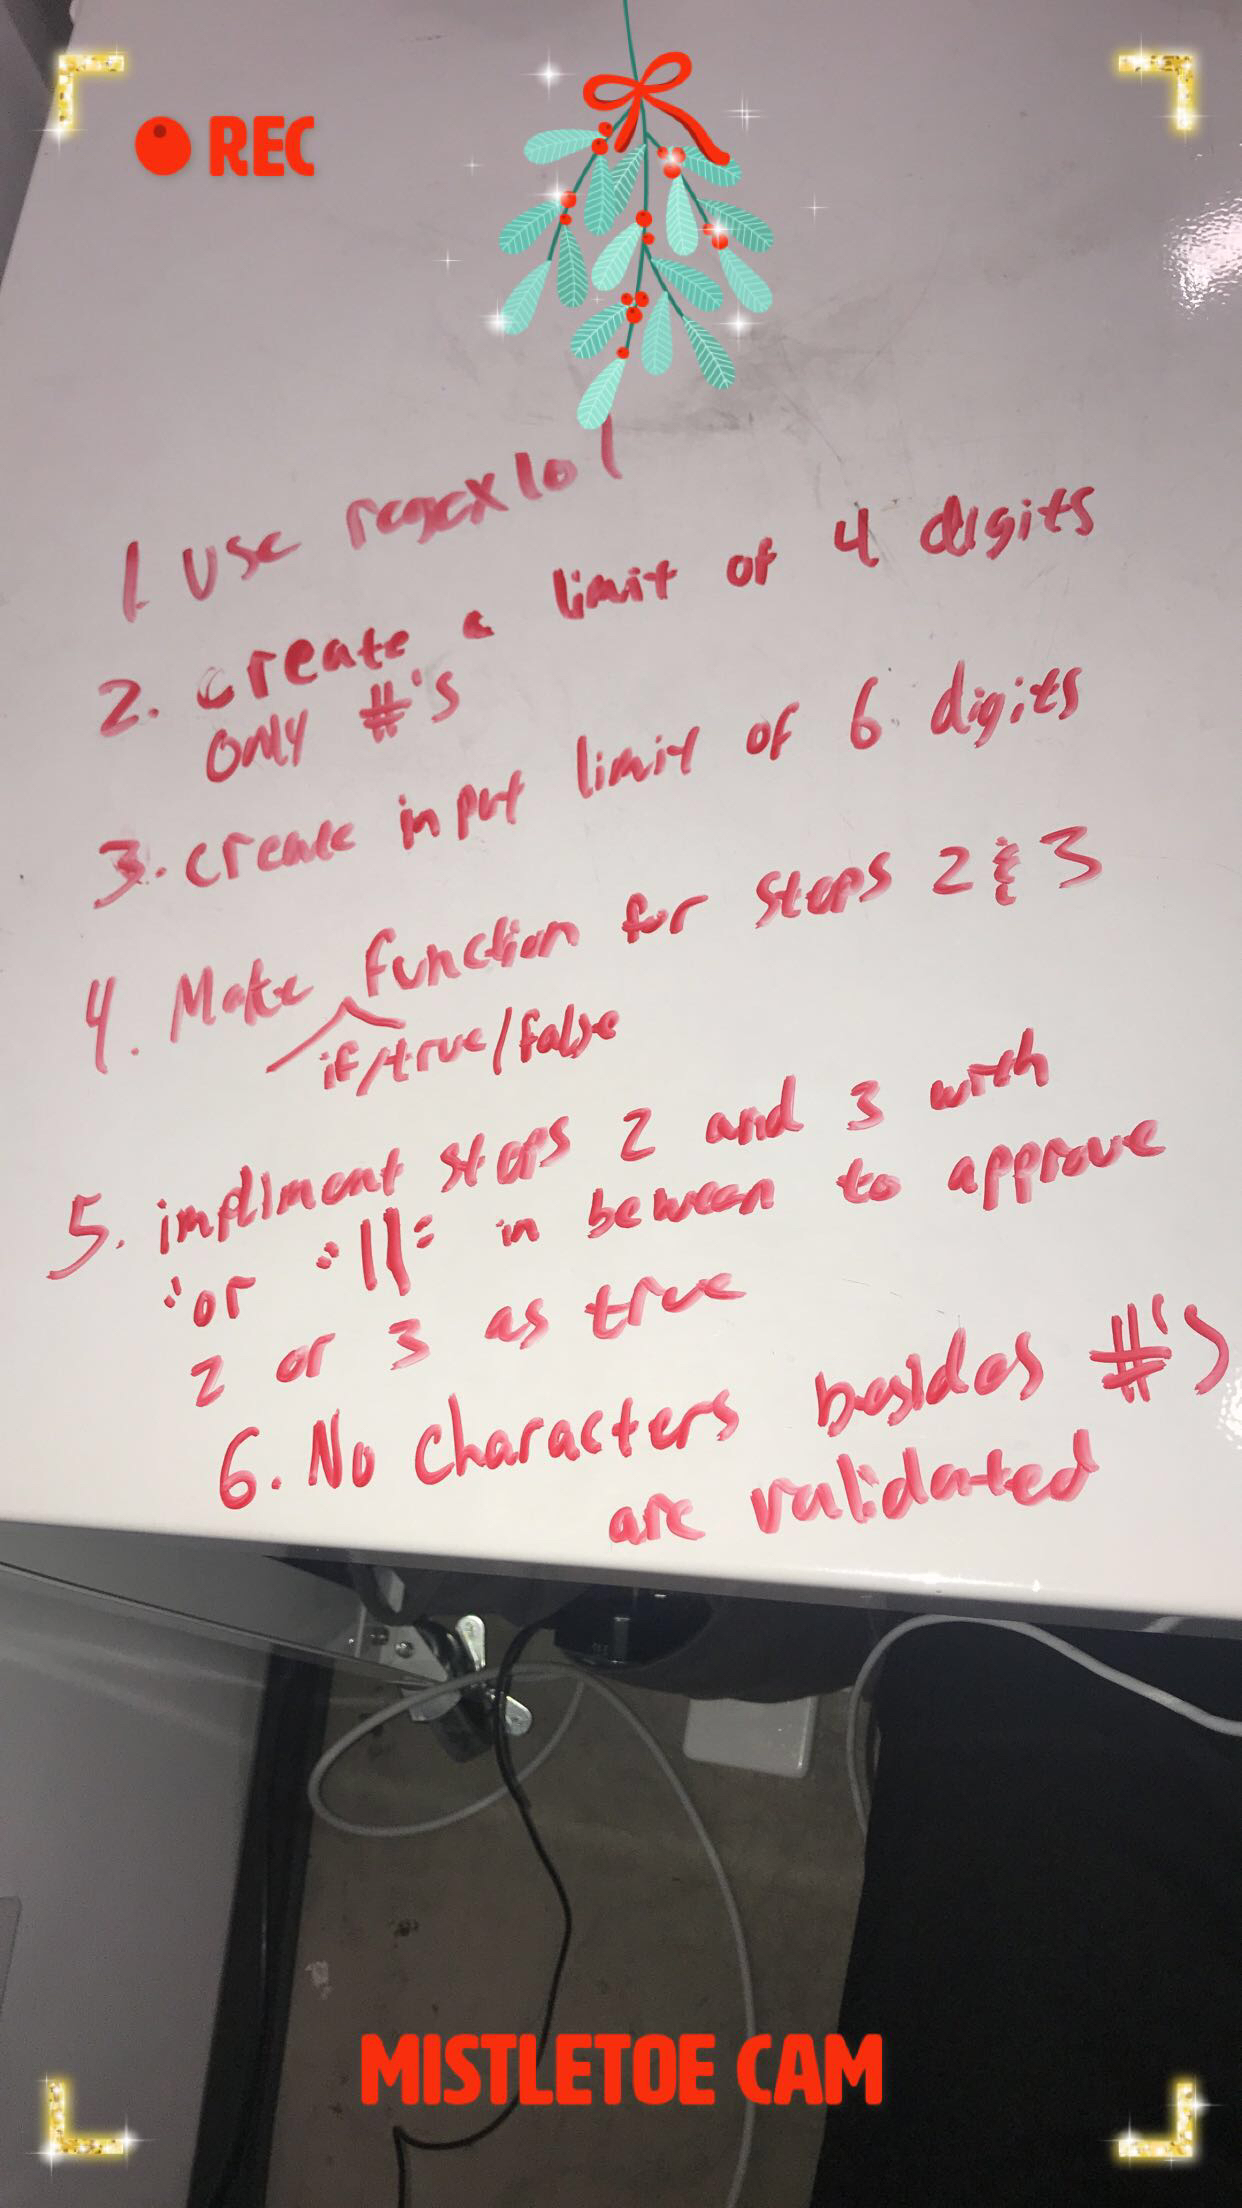 REC
1. Use regex lol
2. create a limit of 4 digits
only #'s
3. create input limit of 6 digits
4. Make function for steps 2 & 3
if/true/false
5. impliment steps 2 and 3 with
"or "||" in beween to approve
2 or 3 as true
6. No characters besides #'s
are validated
MISTLETOE CAM